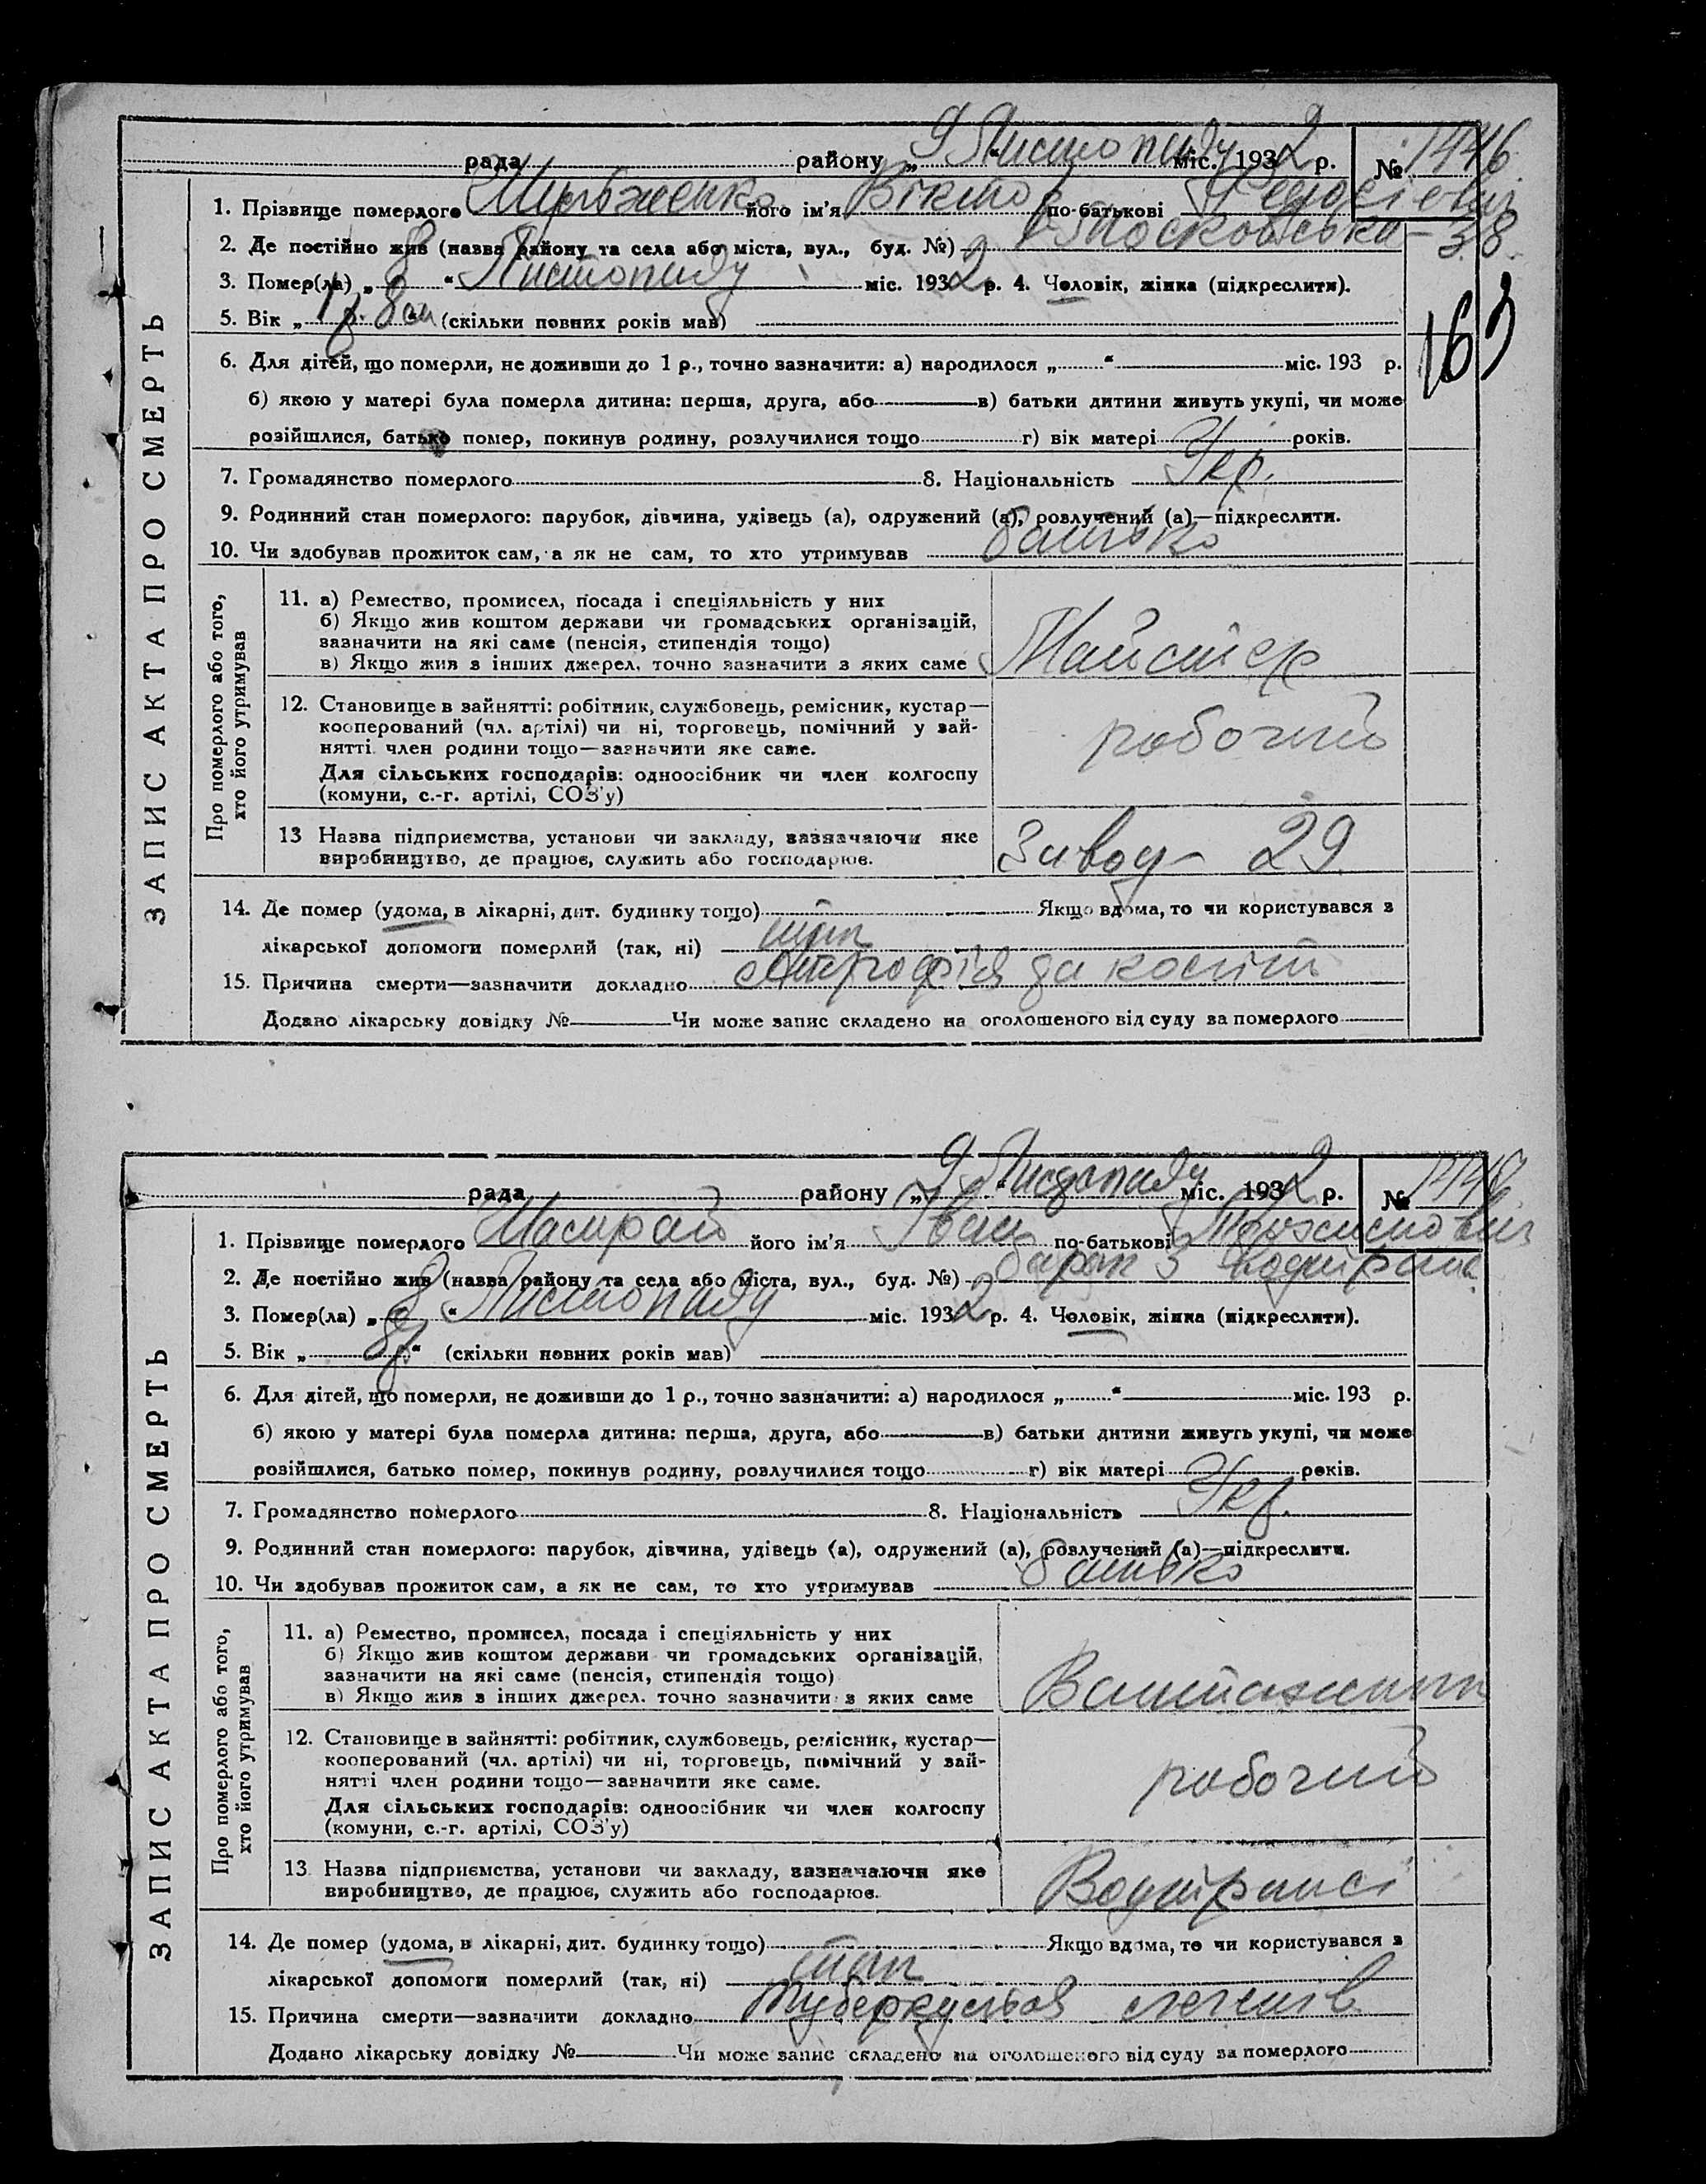 рада району „9“ Листопаду міс. 1932 р. № 1446
1. Прізвище померлого його ім'я Віктор по-батькові
2. Де постійно жив (назва району та села або міста, вул., буд. №) Московська-38.
3. Помер(ла) „8“ Листопаду міс. 1932 р. 4. Чоловік, жінка (підкреслити).
5. Вік „1 р. 8 м“ (скільки повних років мав)
163
6. Для дітей, що померли, не доживши до 1 р., точно зазначити: а) народилося „ “ міс. 193 р.
б) якою у матері була померла дитина: перша, друга, або в) батьки дитини живуть укупі, чи може
розійшлися, батько помер, покинув родину, розлучилися тощо г) вік матері років.
7. Громадянство померлого 8. Національність Укр.
9. Родинний стан померлого: парубок, дівчина, удівець (а), одружений (а), розлучений (а)—підкреслити.
10. Чи здобував прожиток сам, а як не сам, то хто утримував батько
ЗАПИС АКТА ПРО СМЕРТЬ
Про померлого або того, хто його утримував
11. а) Ремество, промисел, посада і спеціяльність у них
б) Якщо жив коштом держави чи громадських організацій,
зазначити на які саме (пенсія, стипендія тощо)
в) Якщо жив з інших джерел, точно зазначити з яких саме Майстер
12. Становище в зайнятті: робітник, службовець, ремісник, кустар—
кооперований (чл. артілі) чи ні, торговець, помічний у зай-
нятті член родини тощо—зазначити яке саме. робочий
Для сільських господарів: одноосібник чи член колгоспу
(комуни, с.-г. артілі, СОЗ'у)
13 Назва підприємства, установи чи закладу, зазначаючи яке
виробництво, де працює, служить або господарює. Завод- 29.
14. Де помер (удома, в лікарні, дит. будинку тощо) Якщо вдома, то чи користувався з
лікарської допомоги померлий (так, ні) так
15. Причина смерти—зазначити докладно
Додано лікарську довідку № Чи може запис складено на оголошеного від суду за померлого
рада району „9“ Листопаду міс. 1932 р. №
1. Прізвище померлого його ім'я Іван по-батькові
2. Де постійно жив (назва району та села або міста, вул., буд. №) барак 3
3. Помер(ла) „8“ Листопаду міс. 1932 р. 4. Чоловік, жінка (підкреслити).
5. Вік „8 р“ (скільки повних років мав)
6. Для дітей, що померли, не доживши до 1 р., точно зазначити: а) народилося „ “ міс. 193 р.
б) якою у матері була померла дитина: перша, друга, або в) батьки дитини живуть укупі, чи може
розійшлися, батько помер, покинув родину, розлучилися тощо г) вік матері років.
7. Громадянство померлого 8. Національність Укр.
9. Родинний стан померлого: парубок, дівчина, удівець (а), одружений (а), розлучений (а)—підкреслити.
10. Чи здобував прожиток сам, а як не сам, то хто утримував батько
ЗАПИС АКТА ПРО СМЕРТЬ
Про померлого або того, хто його утримував
11. а) Ремество, промисел, посада і спеціяльність у них
б) Якщо жив коштом держави чи громадських організацій,
зазначити на які саме (пенсія, стипендія тощо)
в) Якщо жив з інших джерел, точно зазначити з яких саме Вантажник
12. Становище в зайнятті: робітник, службовець, ремісник, кустар—
кооперований (чл. артілі) чи ні, торговець, помічний у зай-
нятті член родини тощо—зазначити яке саме. робочий
Для сільських господарів: одноосібник чи член колгоспу
(комуни, с.-г. артілі, СОЗ'у)
13. Назва підприємства, установи чи закладу, зазначаючи яке
виробництво, де працює, служить або господарює. Водтрансі
14. Де помер (удома, в лікарні, дит. будинку тощо) Якщо вдома, то чи користувався з
лікарської допомоги померлий (так, ні) так
15. Причина смерти—зазначити докладно туберкульоз легенів
Додано лікарську довідку № Чи може запис складено на оголошеного від суду за померлого